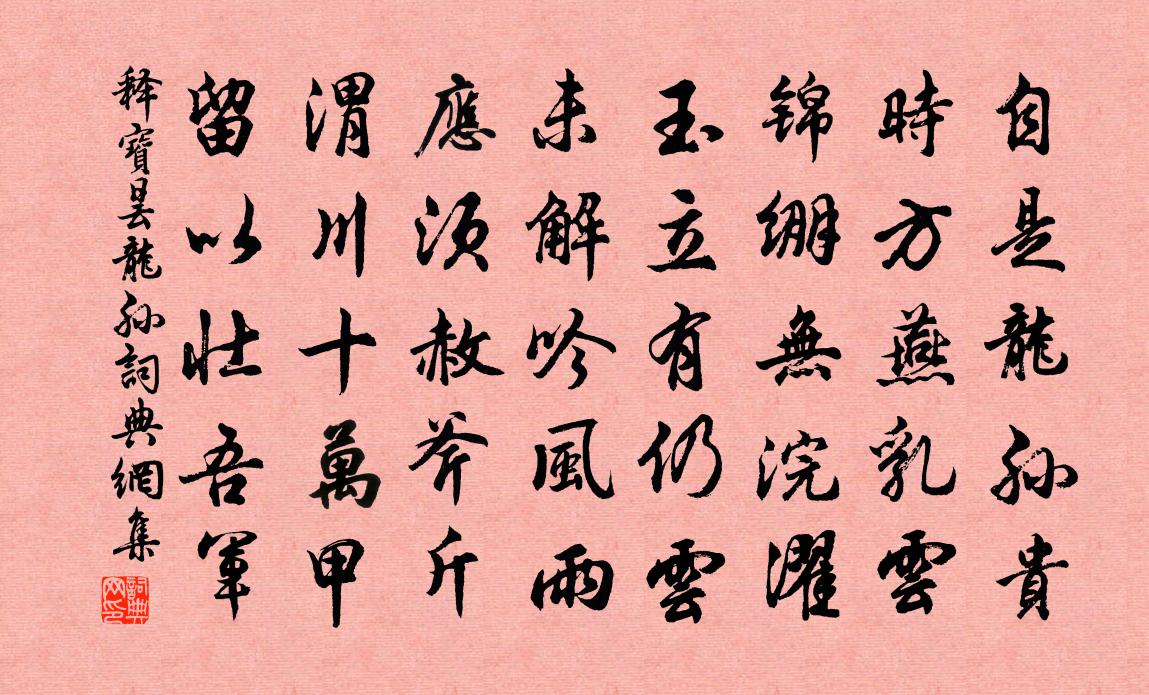 自是龍孫貴
時方燕乳雲
锦绷無浣濯
玉立有仍雲
未解吟風雨
應須赦斧斤
渭川十萬甲
留以壮吾軍
释寶昙龍孙詞典網集
詞典網印